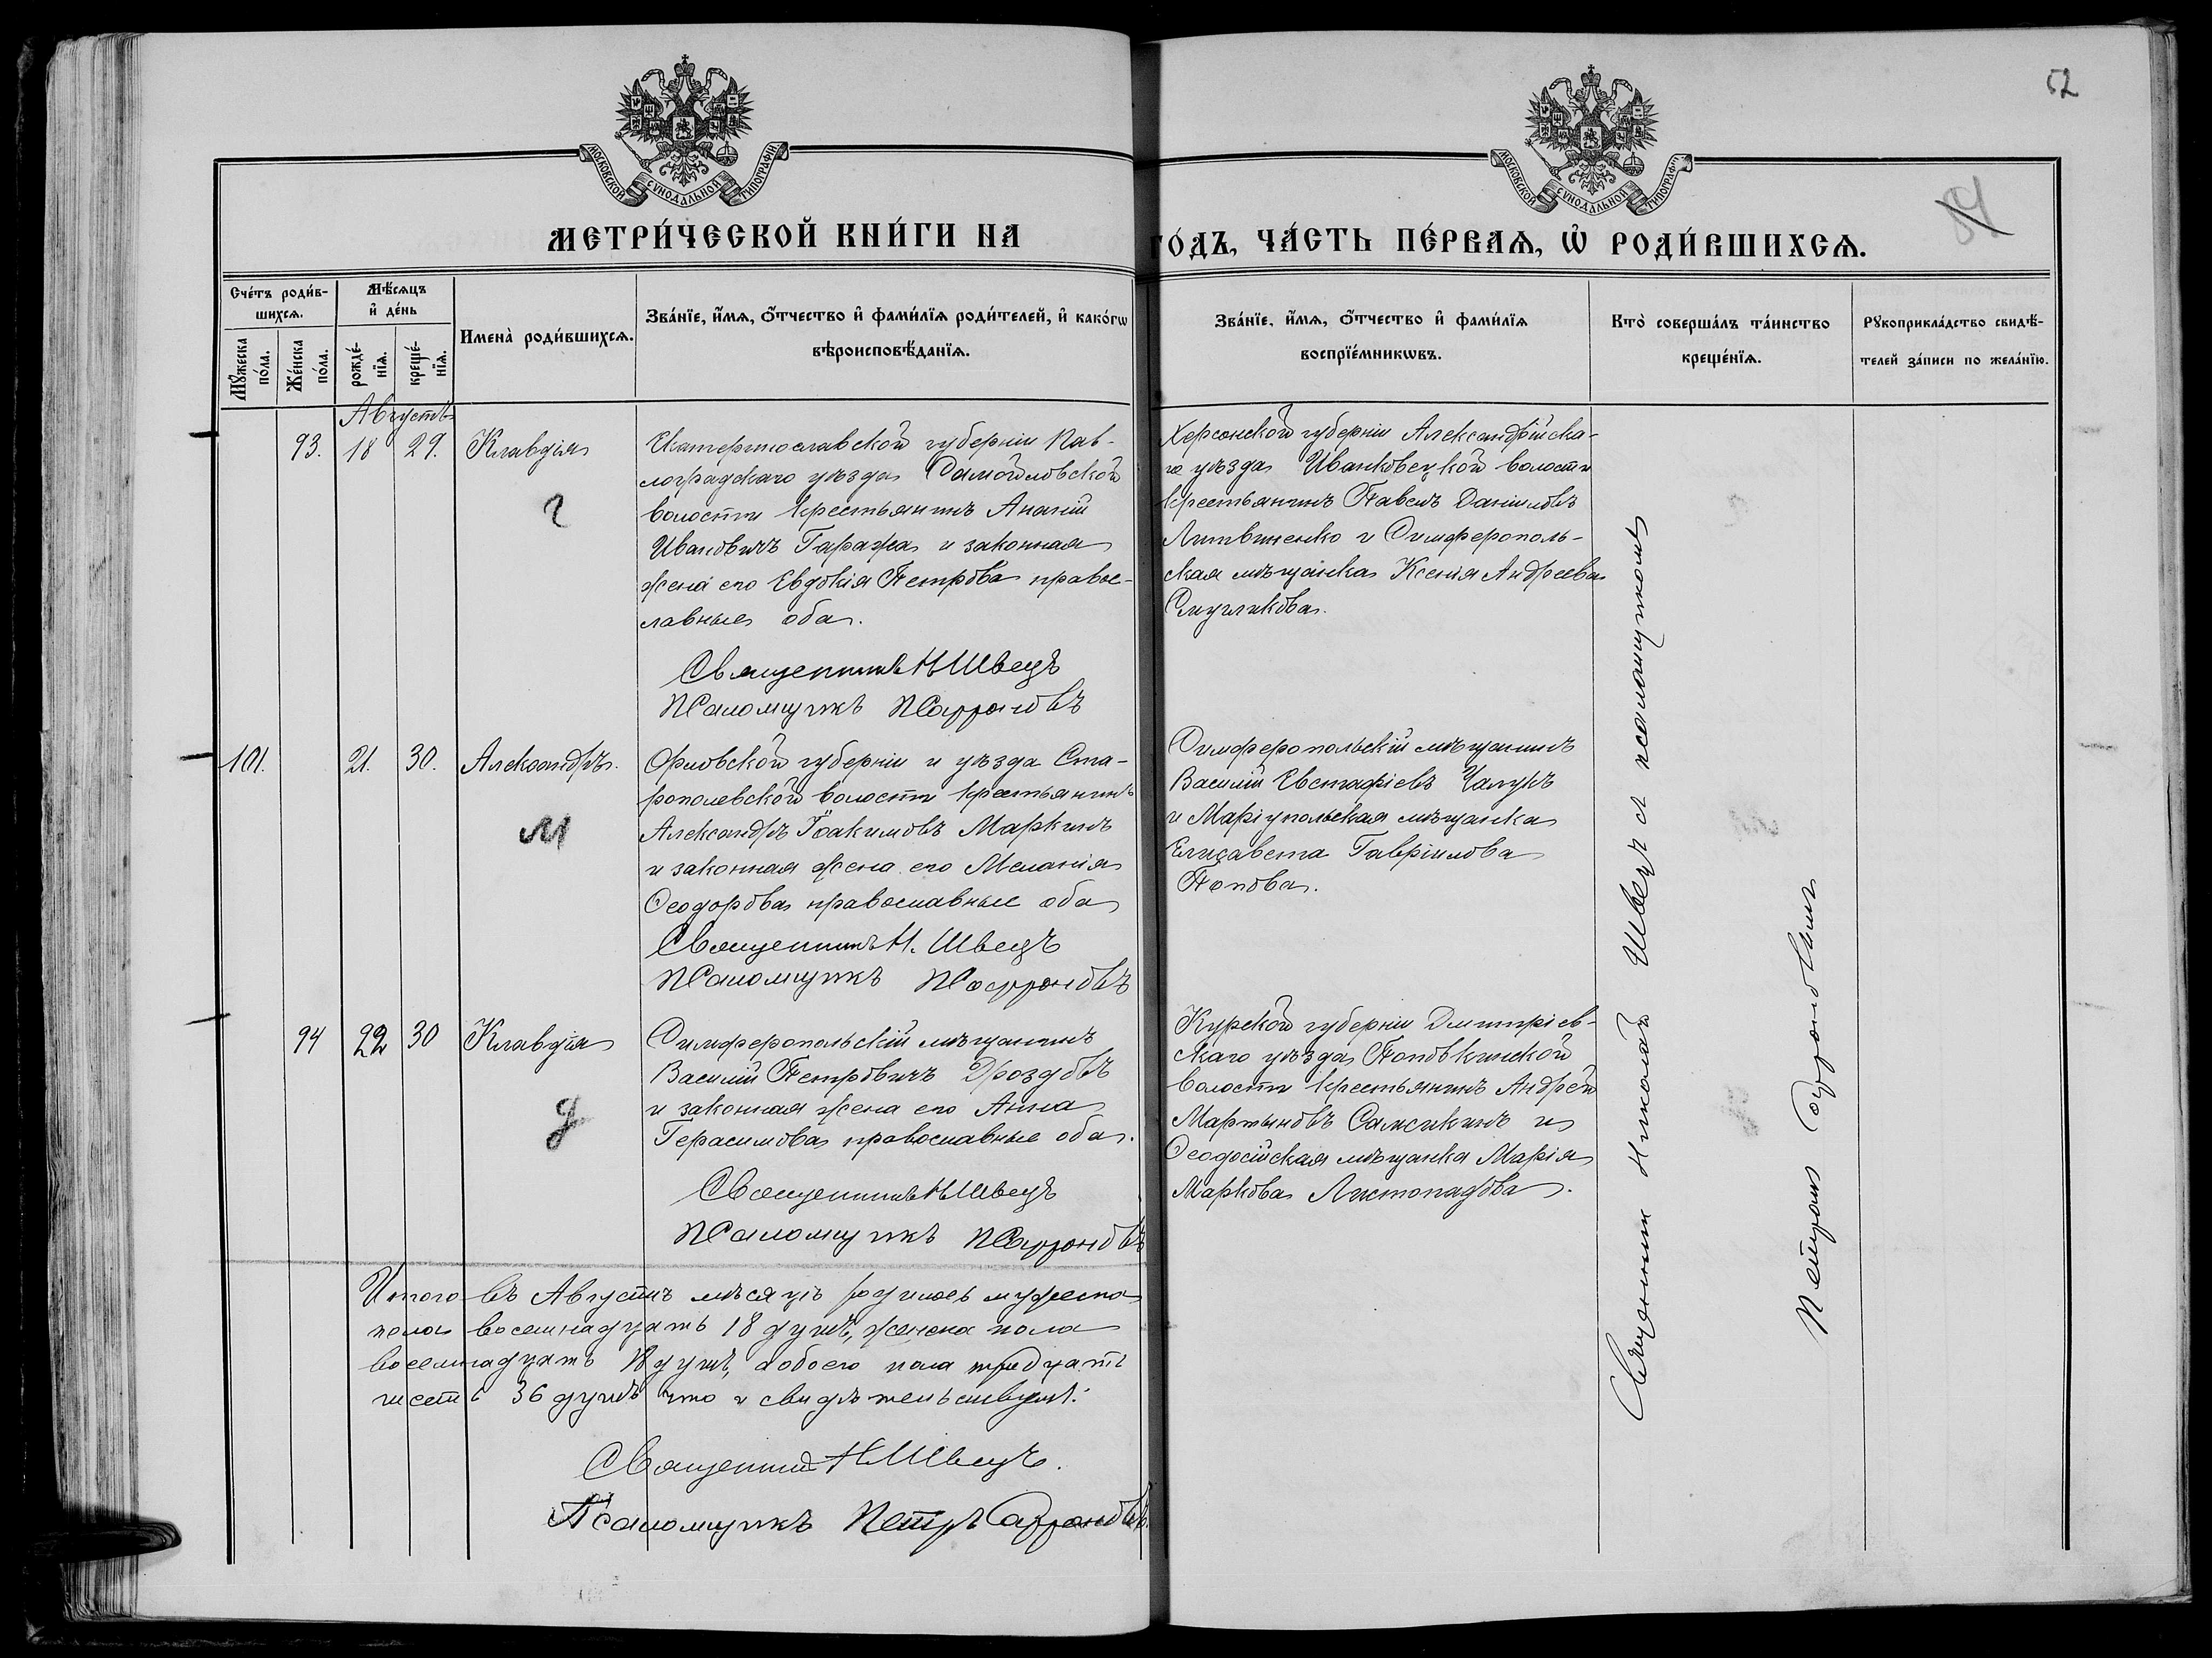 52
МОСКОВСКОЙ СѴНОДАЛЬНОЙ ТИПОГРАФІИ
МОСКОВСКОЙ СѴНОДАЛЬНОЙ ТИПОГРАФІИ
84
МЕТРИ́ЧЕСКОЙ КНИ́ГИ НА
ГО́ДЪ, ЧА́СТЬ ПЕ́РВАѦ, Ѿ РОДИ́ВШИХСѦ.
Сче́тъ роди́в-
шихсѧ.
Мꙋ́жеска по́ла.
Же́нска по́ла.
Мѣ́сѧцъ
и҆ де́нь
рожде́-нїѧ.
креще́-нїѧ.
Имена̀ роди́вшихсѧ.
Зва́нїе, и҆́мѧ, ѻ҆́тчество и҆ фами́лїѧ роди́телей, и҆ како́гѡ
вѣроисповѣ́данїѧ.
Зва́нїе, и҆́мѧ, ѻ҆́тчество и҆ фами́лїѧ
воспрїе́мникѡвъ.
Кто̀ соверша́лъ та́инство
креще́нїѧ.
Рꙋкоприкла́дство свидѣ́-
телей за́писи по жела́нїю.
Августъ
93. 18 29. Клавдія
г
Екатеринославской губерніи Пав-
лоградскаго уѣзда Самойловской
волости крестьянинъ Ананій
Ивановичъ Гаража и законная
жена его Евдокія Петрова право-
славные оба.
Священникъ Н Швецъ
Псаломщикъ П Сафроновъ
Херсонской губерніи Александрійска-
го уѣзда Иванковецкой волости
крестьянинъ Павелъ Даниловъ
Литвиненко и Симферополь-
ская мѣщанка Ксенія Андреева
101. 21. 30. Александръ.
м
Орловской губерніи и уѣзда Ста-
рополевской волости крестьянинъ
Александръ Іоакимовъ Маркинъ
и законная жена его Меланія
Ѳеодорова православные оба
Священникъ Н. Швецъ
Псаломщикъ П Сафроновъ
Симферопольскій мѣщанинъ
Василій Евстафіевъ Чалукъ
и Маріупольская мѣщанка
Елизавета Гавріилова
Попова.
94 22 30 Клавдія
д
Симферопольскій мѣщанинъ
Василій Петровичъ Дроздовъ
и законная жена его Анна
Герасимова православные оба.
Священникъ Н Швецъ
Псаломщикъ П Сафроновъ
Курской губерніи Дмитріев-
скаго уѣзда Поповкинской
волости крестьянинъ Андрей
Мартыновъ Самсикинъ и
Ѳеодосійская мѣщанка Марія
Маркова Листопадова.
Священник Николай Швец с псаломщиком
Петром Сафроновым
Итого въ Августѣ мѣсяцѣ родилось мужеска
пола восемнадцать 18 душъ, женска пола
восемнадцать 18 душъ, а обоего пола тридцать
шесть 36 душъ что и свидѣтельствуемъ:
Священникъ Н Швецъ.
Псаломщикъ Петръ Сафроновъ.